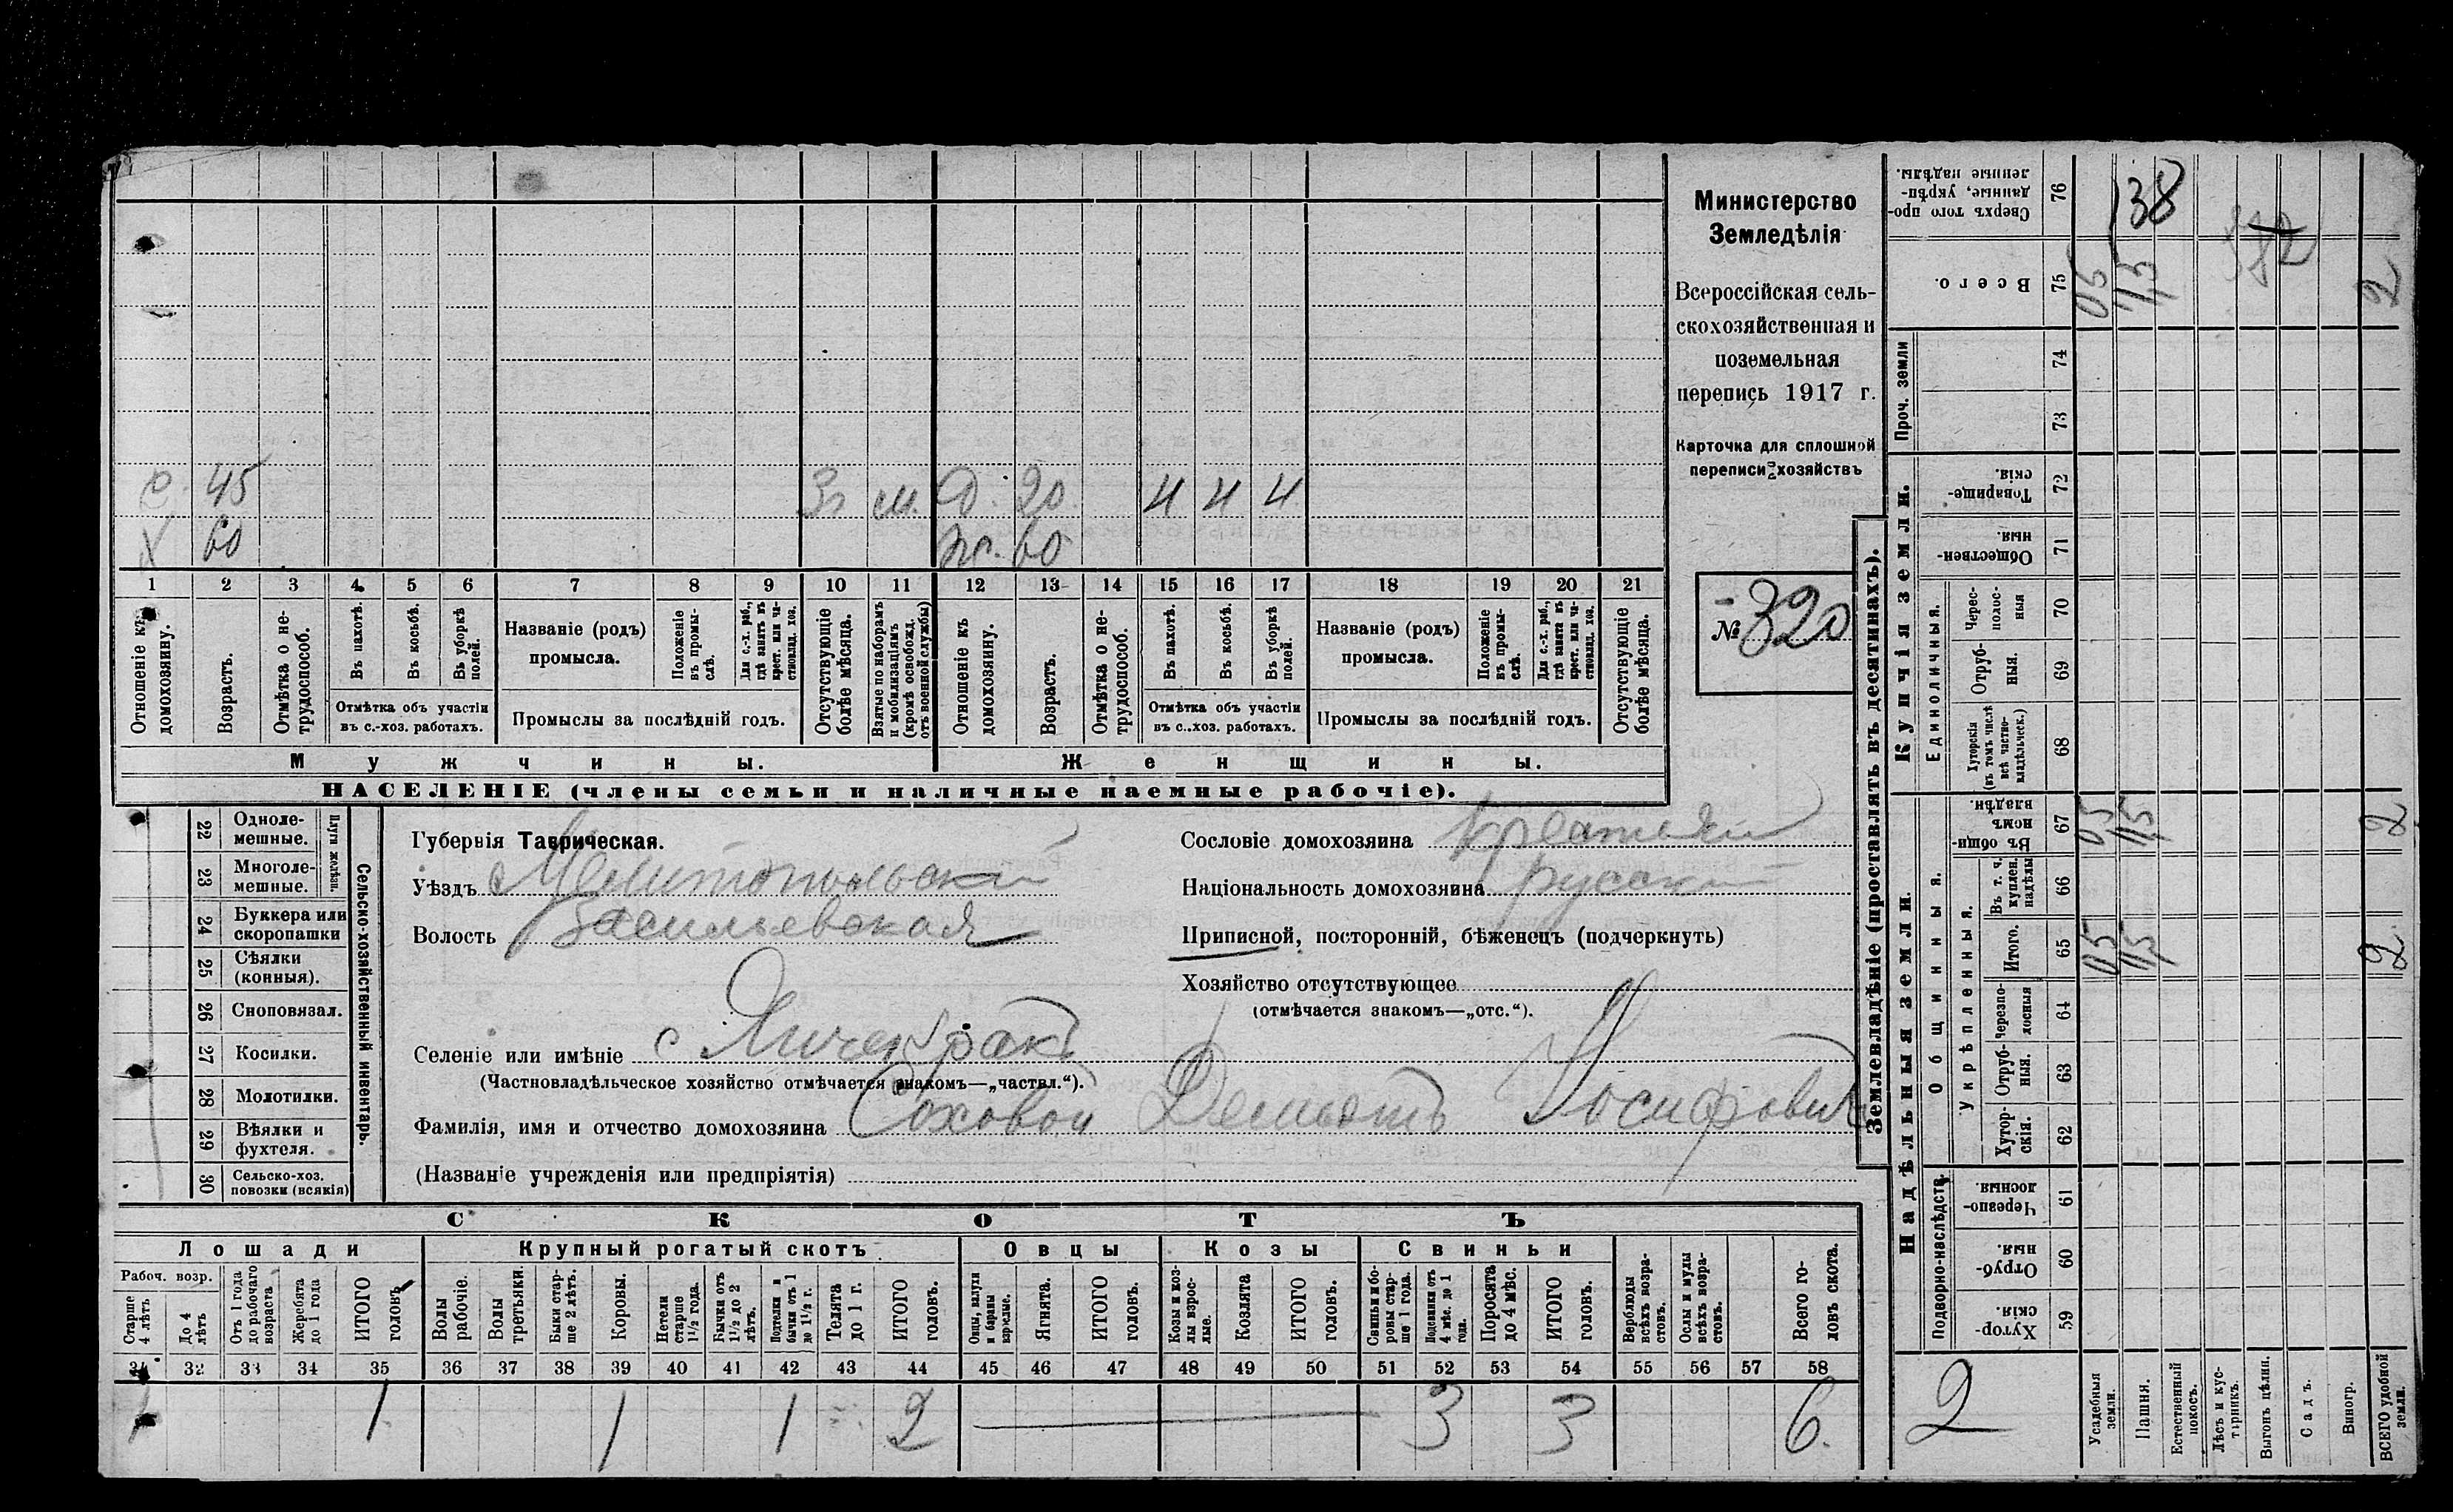 с. 45 3г см. д. 20 4 4 4
х 60 жс. 60
1 2 3 4 5 6 7 8 9 10 11 12 13 14 15 16 17 18 19 20 21
Отношеніе къ домохозяину.
Возрастъ.
Отмѣтка о не-трудоспособ.
Въ пахотѣ.
Въ косьбѣ.
Въ уборкѣ полей.
Отмѣтка объ участіи
въ с.-хоз. работахъ.
Названіе (родъ)
промысла.
Положеніе въ промы-слѣ.
Для с.-х. раб., гдѣ занятъ въ крест. или ча-стновлад. хоз.
Промыслы за послѣдній годъ.
Отсутствующіе болѣе мѣсяца.
Взятые по наборамъ и мобилизаціямъ (кромѣ освобожд. отъ военной службы)
Отношеніе къ домохозяину.
Возрастъ.
Отмѣтка о не-трудоспособ.
Въ пахотѣ.
Въ косьбѣ.
Въ уборкѣ полей.
Отмѣтка объ участіи
въ с.-хоз. работахъ.
Названіе (родъ)
промысла.
Положеніе въ промы-слѣ.
Для с.-х. раб., гдѣ занята въ крест. или ча-стновлад. хоз.
Промыслы за послѣдній годъ.
Отсутствующіе болѣе мѣсяца.
Мужчины. Женщины.
НАСЕЛЕНІЕ (члены семьи и наличные наемные рабочіе).
Министерство
Земледѣлія
Всероссійская сель-
скохозяйственная и
поземельная
перепись 1917 г.
Карточка для сплошной
переписи хозяйствъ
№ 320
22 Одноле-мешные.
23 Многоле-мешные.
Плуги желѣзн.
24 Буккера или скоропашки
25 Сѣялки (конныя).
26 Сноповязал.
27 Косилки.
28 Молотилки.
29 Вѣялки и фухтеля.
30 Сельско-хоз. повозки (всякія)
Сельско-хозяйственный инвентарь.
Губернія Таврическая.
Уѣздъ Мелитопольский
Волость Васильевская
Селеніе или имѣніе с Янчекрак
(Частновладѣльческое хозяйство отмѣчается знакомъ—„частвл.“).
Фамилія, имя и отчество домохозяина Соховой Демьят Иосифович
(Названіе учрежденія или предпріятія)
Сословіе домохозяина
Національность домохозяина русский
Приписной, посторонній, бѣженецъ (подчеркнуть)
Хозяйство отсутствующее
(отмѣчается знакомъ—„отс.“).
СКОТЪ
Лошади Крупный рогатый скотъ Овцы Козы Свиньи
Рабоч. возр.
Старше 4 лѣтъ
До 4 лѣтъ
Отъ 1 года до рабочаго возраста
Жеребята до 1 года
ИТОГО головъ
Волы рабочіе.
Волы третьяки.
Быки стар-ше 2 лѣтъ.
Коровы.
Нетели старше 1½ года.
Бычки отъ 1½ до 2 лѣтъ.
Подтелки и бычки отъ 1 до 1½ г.
Телята до 1 г.
ИТОГО головъ.
Овцы, валухи и бараны взрослые.
Ягнята.
ИТОГО головъ.
Козы и коз-лы взрос-лые.
Козлята
ИТОГО головъ.
Свиньи и бо-ровы стар-ше 1 года.
Подсвинки отъ 4 мѣс. до 1 года.
Поросята до 4 мѣс.
ИТОГО головъ.
Верблюды всѣхъ возра-стовъ.
Ослы и мулы всѣхъ возра-стовъ.
Всего го-ловъ скота.
31 32 33 34 35 36 37 38 39 40 41 42 43 44 45 46 47 48 49 50 51 52 53 54 55 56 57 58
1 1 1 1 2 3 3 6.
Землевладѣніе (проставлять въ десятинахъ).
Сверхъ того про-данные, укрѣп-ленные надѣлы. 76 138
Всего. 75 05 15 2
Проч. земли
74
73
Купчія земли.
Товарище-скія. 72
Обществен-ныя. 71
Единоличныя.
Черес-полос-ныя 70
Отруб-ныя. 69
Хуторскія (въ томъ числѣ всѣ частно-владѣльческ.) 68
Надѣльныя земли.
Общинныя.
Въ общи-номъ владѣн. 67 05 15 2
Укрѣпленныя.
Въ т. ч. куплен. надѣлы 66
Итого. 65 05 15 2
Черезпо-лосныя 64
Отруб-ныя. 63
Хутор-скія. 62
Подворно-наслѣдств.
Черезпо-лосныя. 61
Отруб-ныя. 60
Хутор-скія. 59
2
Усадебныя земли.
Пашня.
Естественный покосъ.
Лѣсъ и кус-тарникъ.
Выгонъ цѣлин.
Садъ.
Виногр.
ВСЕГО удобной земли.